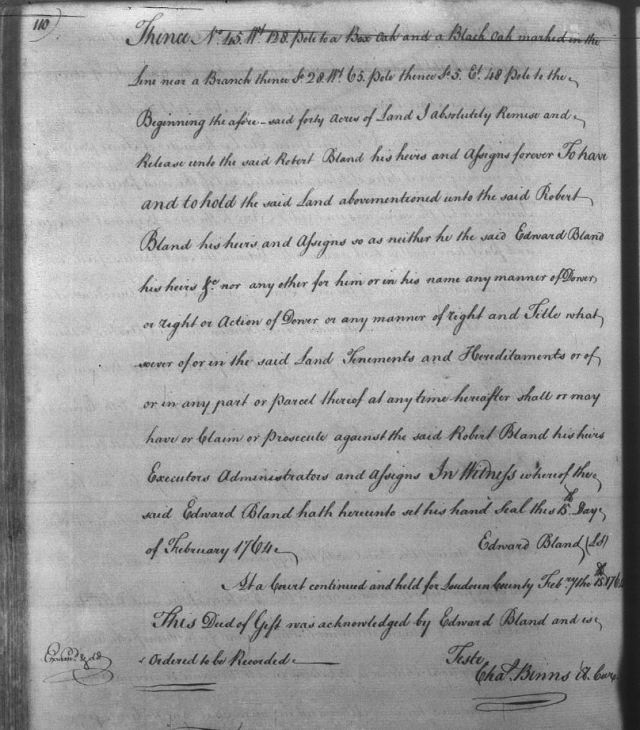 110
Thence No. 45. Wt. 128. pole to a Box Oak and a Black Oak marked in the
Line near a Branch thence So. 28. Wt. 65. pole thence So. 5. Et. 48 pole to the
Beginning the afore-said forty Acres of Land I absolutely Remise and
Release unto the said Robert Bland his heirs and Assigns forever To have
and to hold the said Land abovementioned unto the said Robert
Bland his heirs and Assigns so as neither he the said Edward Bland
his heirs &c. nor any other for him or in his name any manner of Dower
or right or Action of Dower or any manner of right and Title what
soever of or in the said Land Tenements and Hereditaments or of
or in any part or Parcel thereof at any time hereafter shall or may
have or Claim or Prosecute against the said Robert Bland his heirs
Executors Administrators and Assigns In Witness whereof the
said Edward Bland hath hereunto set his hand Seal this 15th. Day
of February 1764
Edward Bland (LS)
At a Court continued and held for Loudoun County Febry. the 15th 176
This Deed of Gift was acknowledged by Edward Bland and is
Ordered to be Recorded
Teste
Chas. Binns Cl. Cur